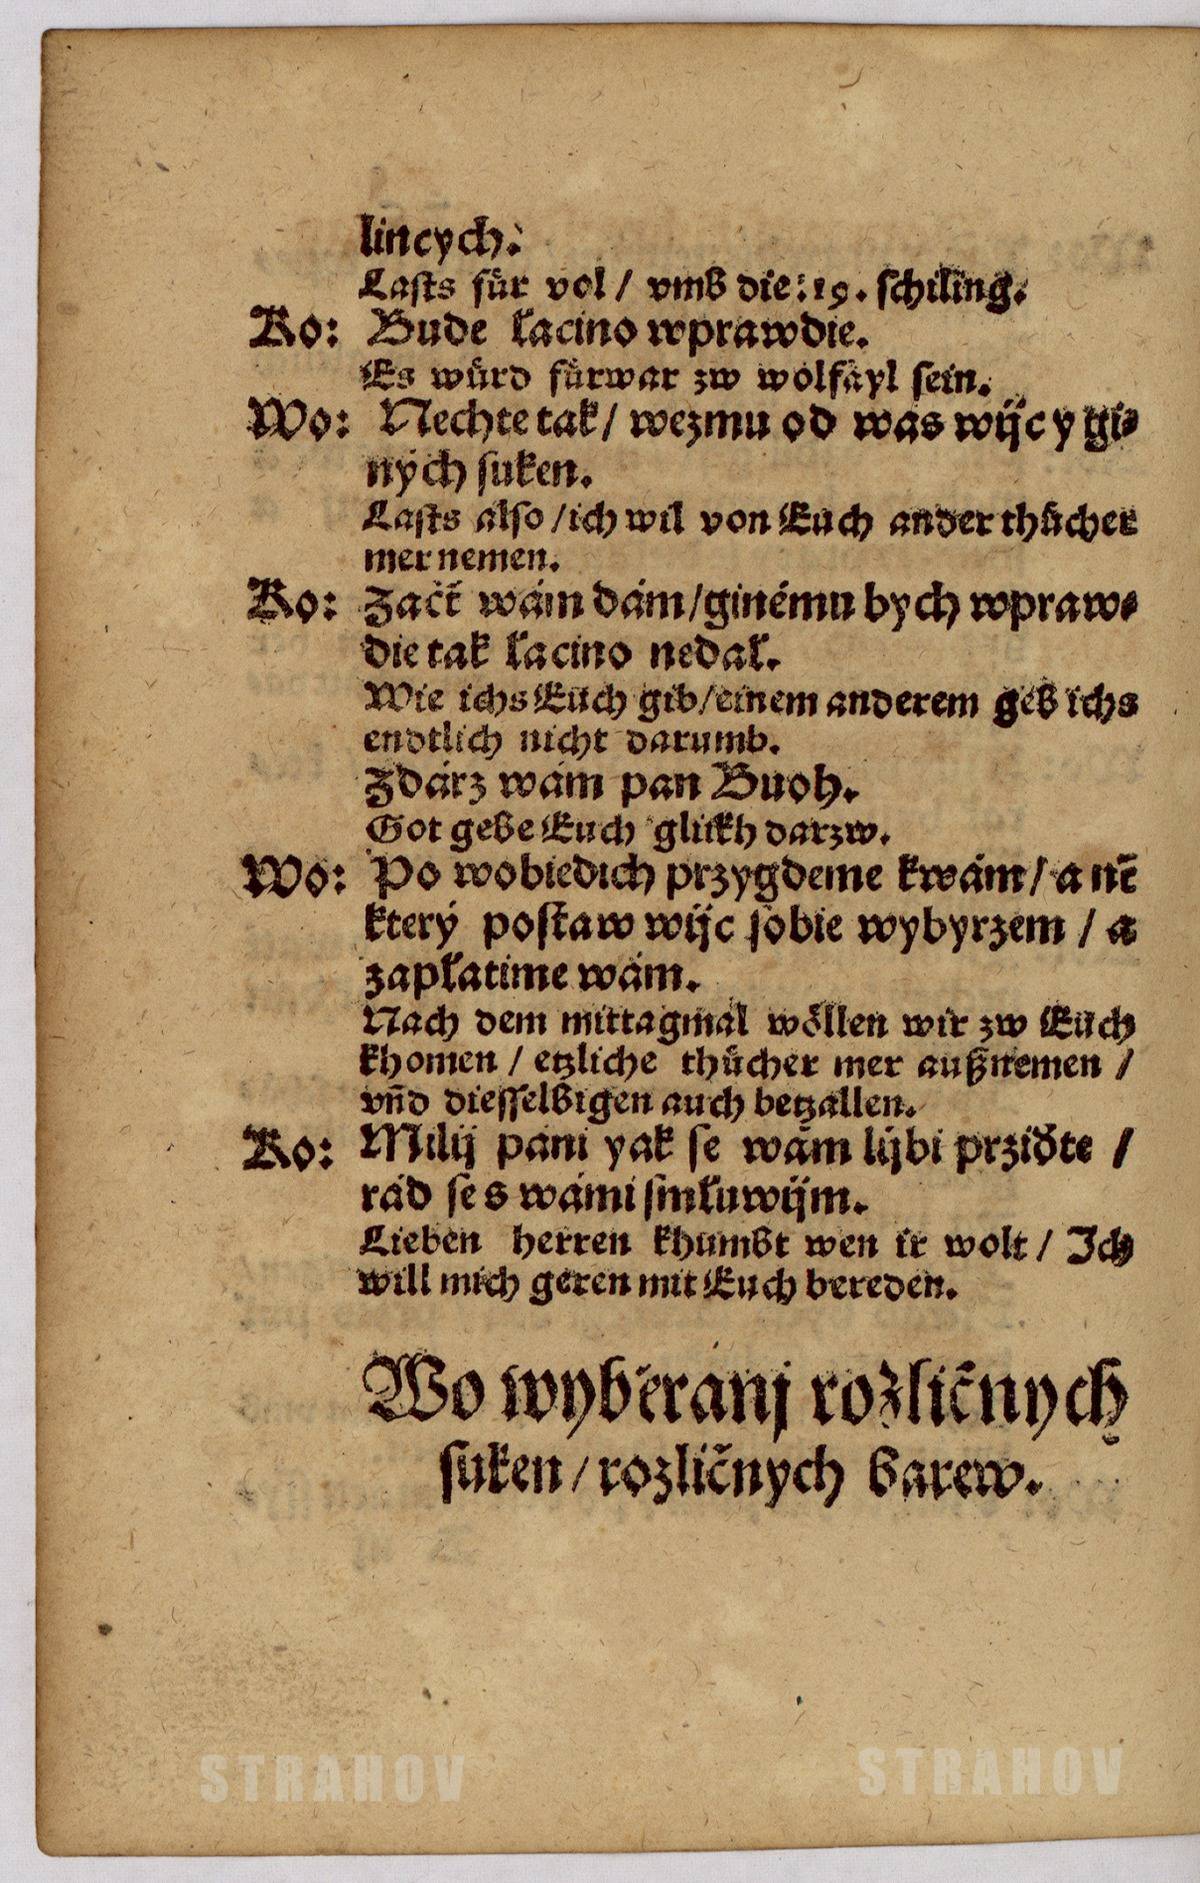 lincych.
Lasts für vol / vmb die: 19. schiling.
Ko: Bude łacino wprawdie.
Es würd fürwar zw wolfayl sein.
Wo: Nechte tak / wezmu od was wijc y gi⸗
ných suken.
Lasts also / ich wil von Euch ander thücher
mer nemen.
Ko: Začť wám dám / ginému bych wpraw⸗
die tak łacino nedał.
Wie ichs Euch gib / einem anderem geb ichs
endtlich nicht darumb.
Zdárz wám pan Buoh.
Got gebe Euch glükh darzw.
Wo: Po wobiedich przygdeme kwám / a nē
který postaw wijc sobie wybyrzem / a
zapłatime wám.
Nach dem mittagmal wöllen wir zw Euch
khomen / etzliche thücher mer außnemen /
vn̄d diesselbigen auch betzallen.
Ko: Milij páni yak se wám lijbi prziďte /
rád se s wámi smłuwijm.
Lieben herren khumbt wen ir wolt / Ich
will mich geren mit Euch bereden.
Wo wyběranj rozličnych
suken / rozličnych barew.
STRAHOV STRAHOV